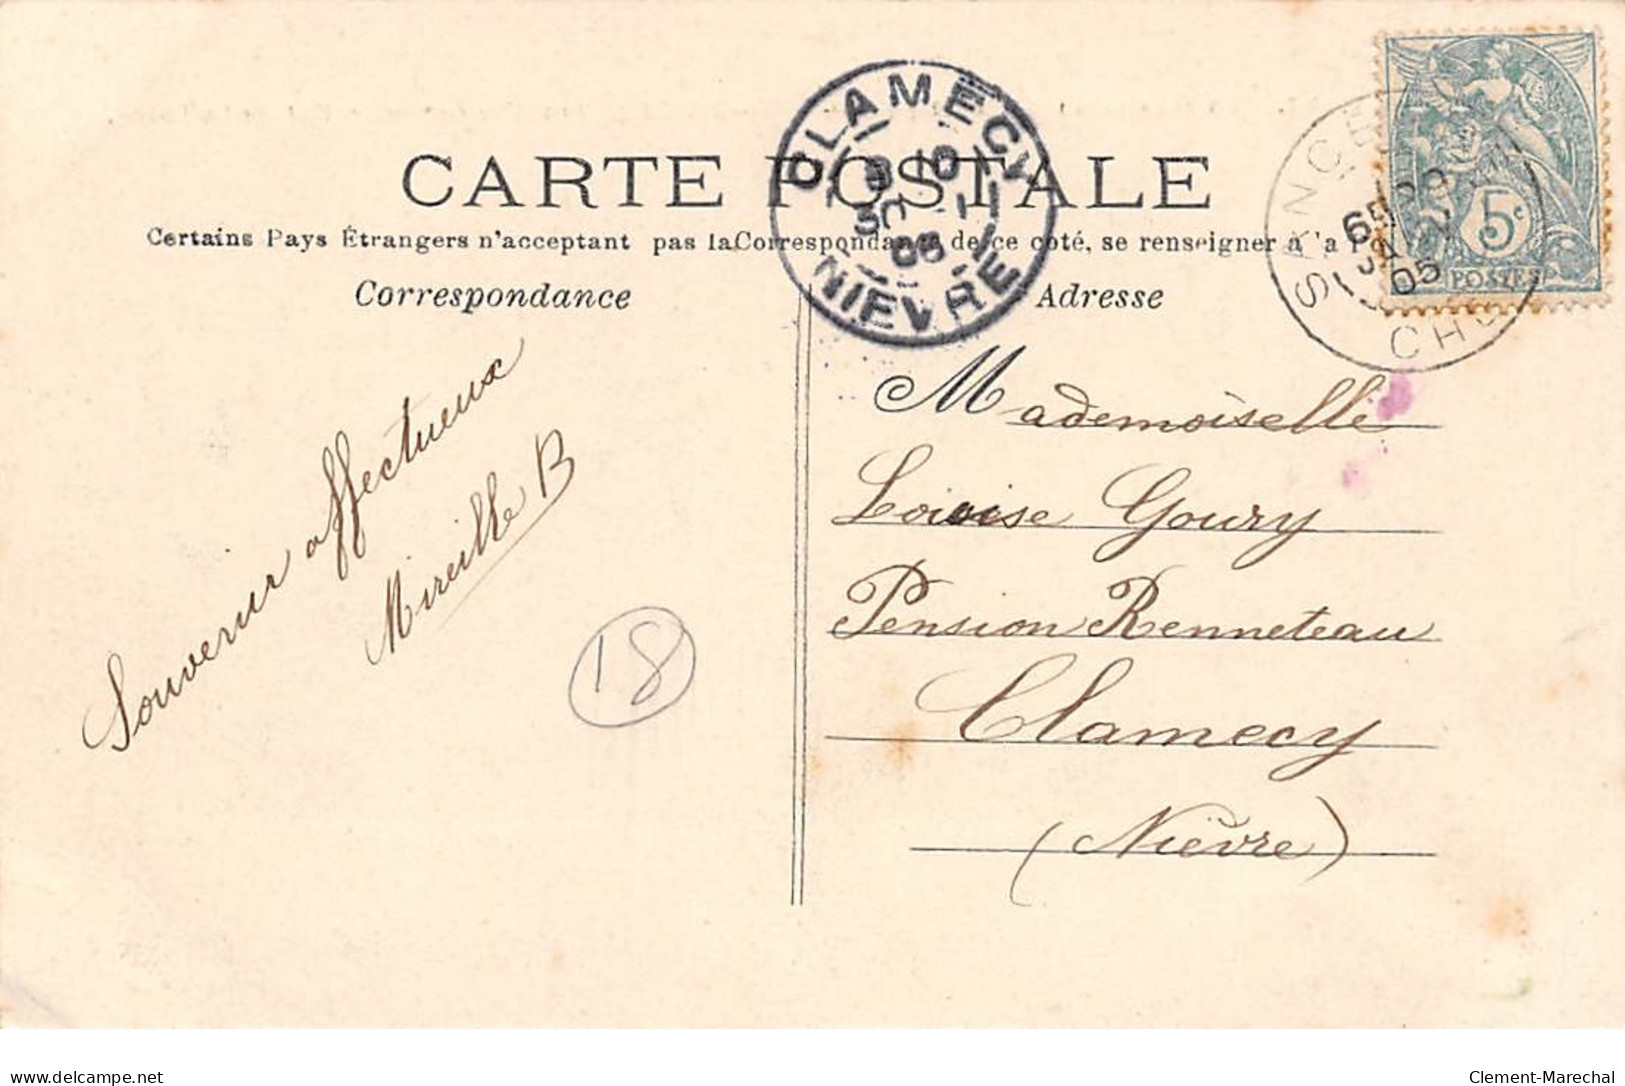 CARTE POSTALE
Certains Pays Étrangers n'acceptant pas la Correspondance de ce côté, se renseigner à la
Correspondance
Adresse
CLAMECY
NIEVRE
SANCE
CHE
05
5c
POSTES
Souvenir affectueux
Mireille B
18
Mademoiselle
Louise Goury
Pension Renneteau
Clamecy
(Nièvre)
delcampe.net
Clement-Marechal